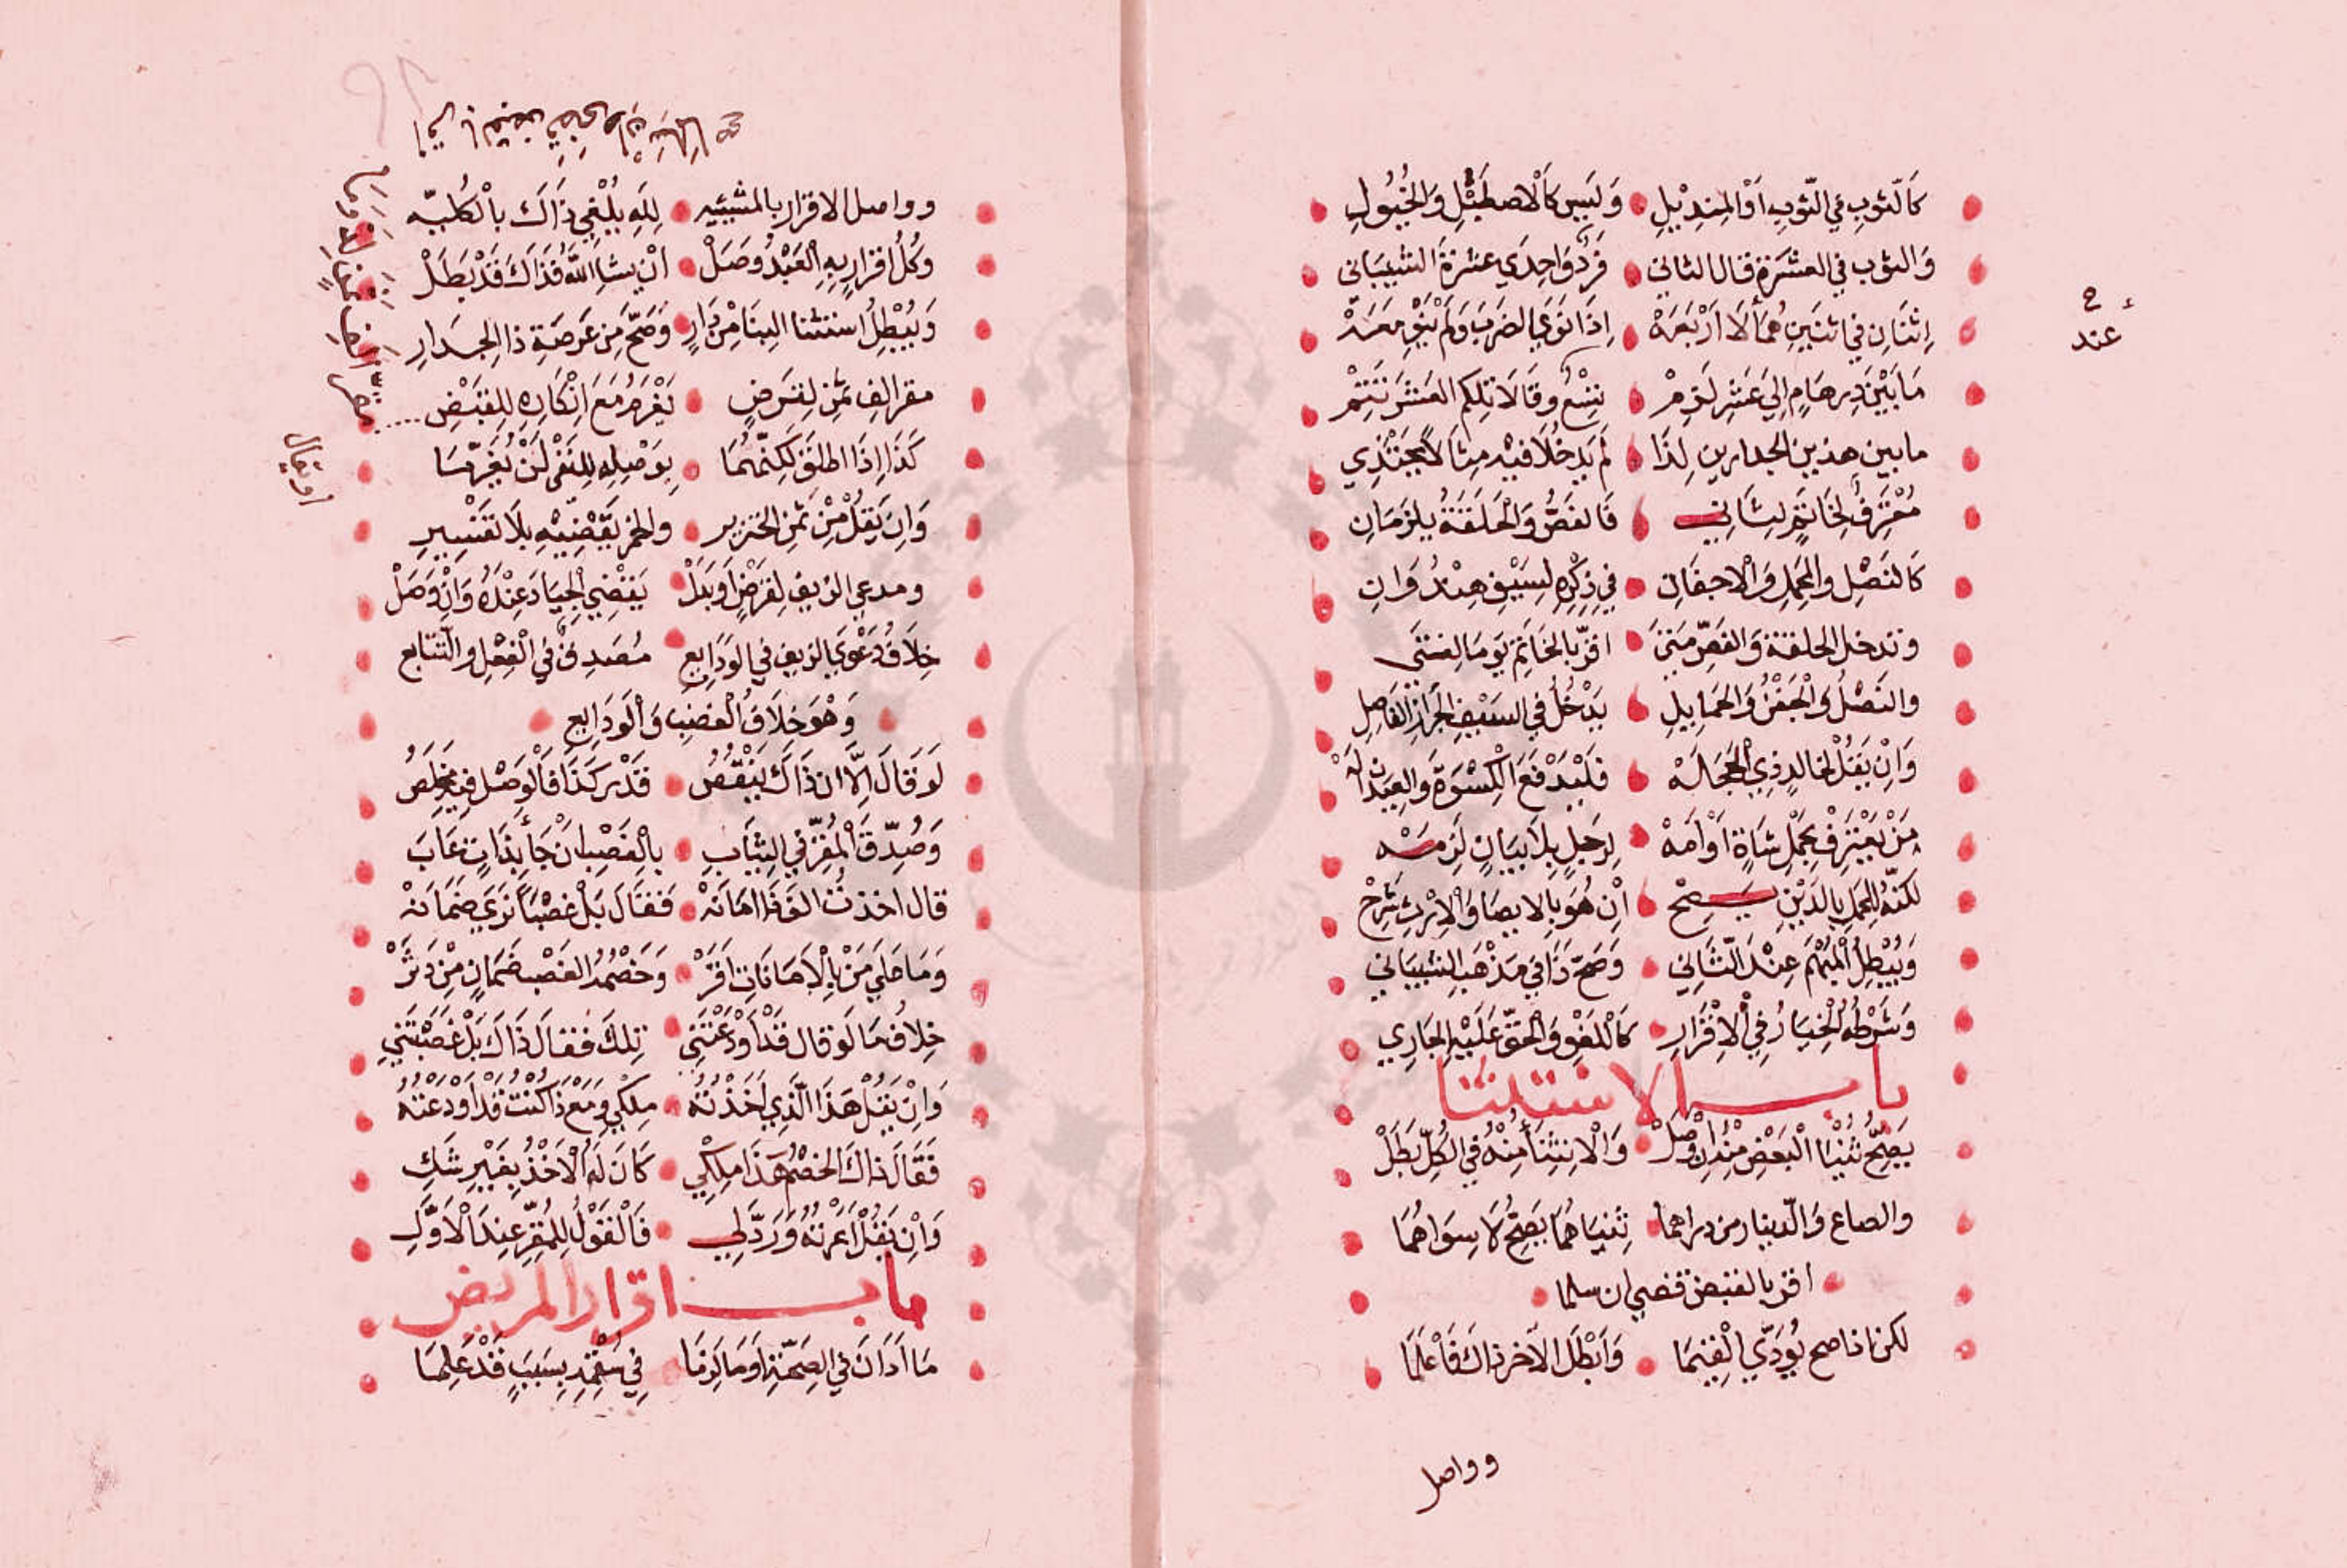 كَالثَّوبِ فِي الثَّوبِ اَوْ المِنْدِيْلِ وَلَيسَ كَالاصطَبْلِ وَالخُيُولِ
وَالثوب في العشَرَةِ قال الثاني فَرْدٌ وَاحِدَي عشرَةَ الشيبَانى
اِثنَانِ في اثنَينِ هُمَا لَا اَرْبَعَهْ اِذَا نَوَي الضربَ وَلَمْ يَنْوِ مَعَهْ
مَا بَيْنَ دِرهَامٍ اِلَي عَشْرٍ لَزِمْ تِسْعٌ وقَالَا تلكم العَشر تَتِمْ
ما بين هذين الجدارين لِذَا لَمْ يَدخُلَا فيْه مِثَالًا يُجْتَذِي
مُعْتَرِفٌ لِخَاتَمٍ لِثَانِي فَالفَصُّ وَالحَلقَةُ يلزمَانِ
كَالنَصْلِ والمحمل وَالاجفَانِ فِي ذِكْرِهِ لِسَيْفِ هِنْدُوَانِ
وتدخل الحلقة وَالفَصِّ مَتَي اقرَّ بِالخَاتَمِ يَومًا لِفتَي
والنَصْلُ وَالجَفْنُ وَالحَمَايِلِ يَدْخُلُ في السَيْفِ الجرَازِ الفَاصِلِ
وَاِنْ يَقُلْ لخالدٍ ذِي الحَجَلَهْ فَليَدْفَعَ الكِسْوَةَ والعِيدَان لَهْ
مَنْ يَعْتَرِفْ بِحَمْلِ شَاةٍ اَوْ اَمَهْ لِرَجُلٍ بِلَا بَيَانٍ لَزِمَهْ
لَكنّهُ لِلحَمَلِ بِالدَيْنِ يَصِحْ اِنْ هُوَ بِالايصَا وَالْاِرْثِ شَرَحْ
وَيُبْطِلُ المُبْهَمَ عِنْدَ الثَّانِي وَصَحَّ ذَا فِي مَذْهَبِ الشيبَانِي
وَشَرْطُه الْخِيَارُ فِي الْاِقْرَارِ كَاللَّغْوِ وَالحَقُّ عَلَيْهِ الجَارِي
باب الاستثنا
يَصِحُّ ثُنْيَا الْبَعْضِ مِنْهُ اِنْ وَصَلْ وَالاستِثنَا مِنْهُ فِي الكُلِّ بَطَلْ
والصاع وَالدّينار من دراهما ثِنيَاهُمَا يَصِحُّ لَا سِوَاهُمَا
اقر بالقبض قضي ان سلما
لكن اذا صح يُوَدِّي القِيَمَا وَاَبْطَلَ الآخر ذاك فَاعْلَمَا
وواصل
عند
وواصل الاقرار بالمشيّه لِلهِ يُلْغِي ذَاكَ بِالْكُلِّيّه
وَكُلُّ اقرارٍ بِهِ العَبْدُ وَصَلْ اَنْ يشا اللهُ فَذَاكَ قَدْ بَطَلْ
وَيُبْطِلُ استثنا البِنَا مِنْ دَارِ وَصَحَّ مِن عَرصَةِ ذا الجِدَارِ
مقر الفٍ ثمن لقرضٍ يَغْرَمُ مَعَ اِنْكَارِهِ لِلقَبْضِ
كَذَا اِذَا اطلقَ لَكِنَّهُمَا بِوَصْلِهِ لِلنَفي لَنْ يُغَرِّمَا
وَاِن يَقُلْ مِنْ ثَمَنِ الخنزير والخمر يَقْضِيْهِ بِلَا تَفْسِيرِ
ومدعي الزيف لقرضٍ اَو بَدَلْ يَقْضِي الجِيَادَ عِنْدَهُ وَاِنْ وَصَلْ
خِلَافُ دَعْوَي الزيف في الوَدَايعِ مُصَدِقٌ في الْفِعْلِ والتّتَابع
وَهْوَ خِلَافُ الْغصبِ وَالْوَدَايِعِ
لَوْ قَالَ اِلَّا ان ذَاكَ يَنْقُصُ قَدْر كَذَا فَالْوَصْل فِيهِ مُخْلِصُ
وَصُدِّقَ الْمُقِرُّ فِي الثِيَابِ بِالْغَصْبِ ان جَا بِذَاتِ عَابَ
قال اخذتُ الفَ فَا امَانَهْ فَقَال بَلْ غَصْبًا تَرَي ضَمَانَهْ
وَمَا عَلَي مَنْ بِالْاَمَانَاتِ اقَرْ وَخَصْمُهُ الغَصْب ضَمَانٍ مِنْ دَثَرْ
خِلافُ مَا لَوْ قال قَدْ اَوْدَعْتَنِي تِلكَ فَقَالَ ذَاكَ بَلْ غَصَبْتَنِي
وَاِنْ يَقُلْ هَذَا الَّذِي اَخَذْتُهُ مِلكِي وَمَعْ ذَا كُنْتُ قَدْ اَوْدَعْتُهُ
فَقَالَ ذاكَ الخَصْمُ هَذَا مِلْكِي كَانَ لَهُ الْاَخْذُ بِغَيْرِ شَكِّ
وَاِنْ يَقُلْ اَعَرْتُهُ وَرَدَّ لِي فَالْقَوْلُ لِلمُقِرِّ عِندَ الْاَوَّلِ
باب اقرار المريض
مَا ادَانَ فِي الصِحَّةِ اَوْ مَا لَزِمَا فِي سُقْمِهِ بِسَبَبٍ قَدْ عَلِمَا